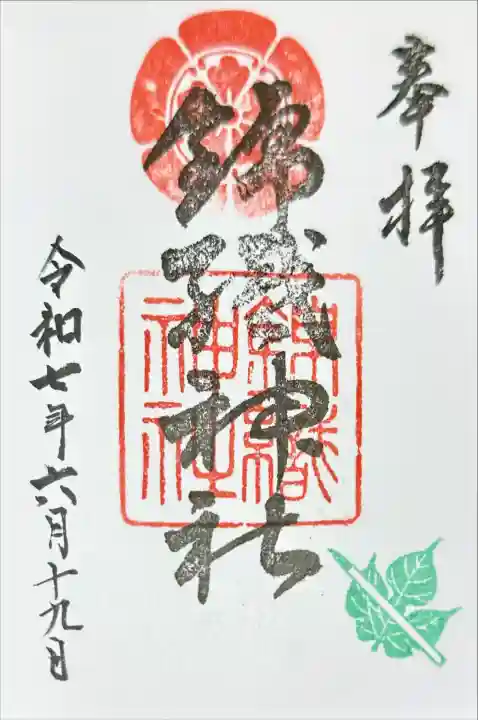 奉拝
錦織神社
錦織神社
令和七年六月十九日